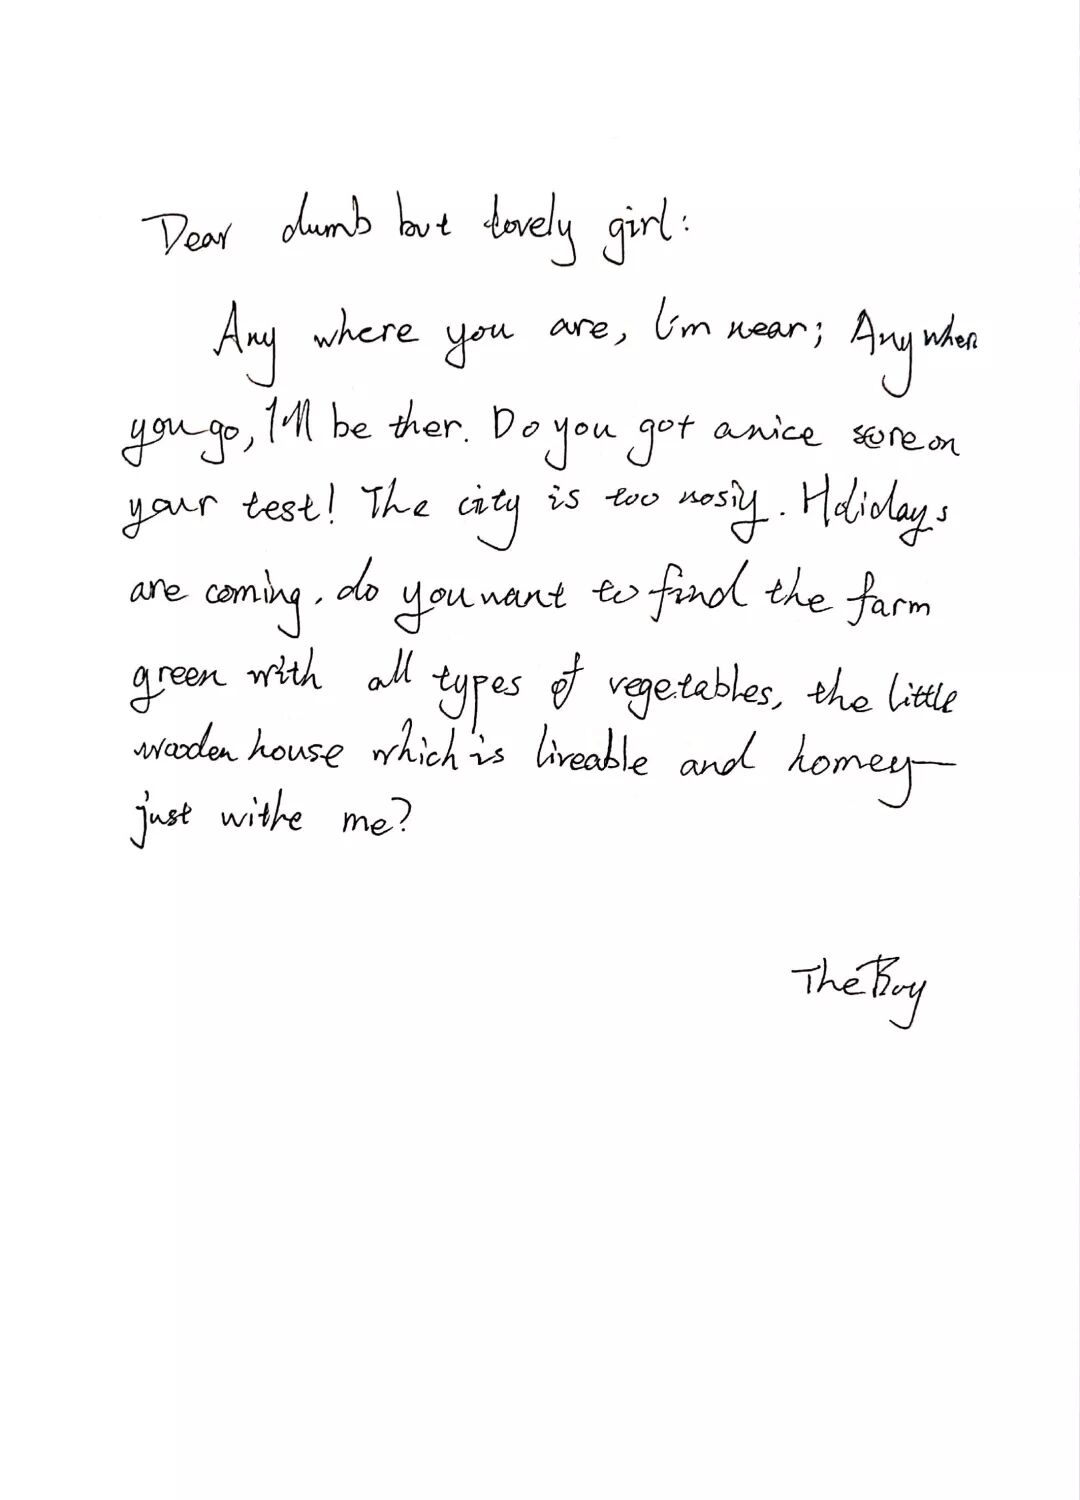 Dear dumb but lovely girl:
Any where you are, I'm near; Any when
you go, I'll be ther. Do you got a nice score on
your test! The city is too nosiy. Holidays
are coming, do you want to find the farm
green with all types of vegetables, the little
wooden house which is liveable and homey—
just withe me?
The Boy